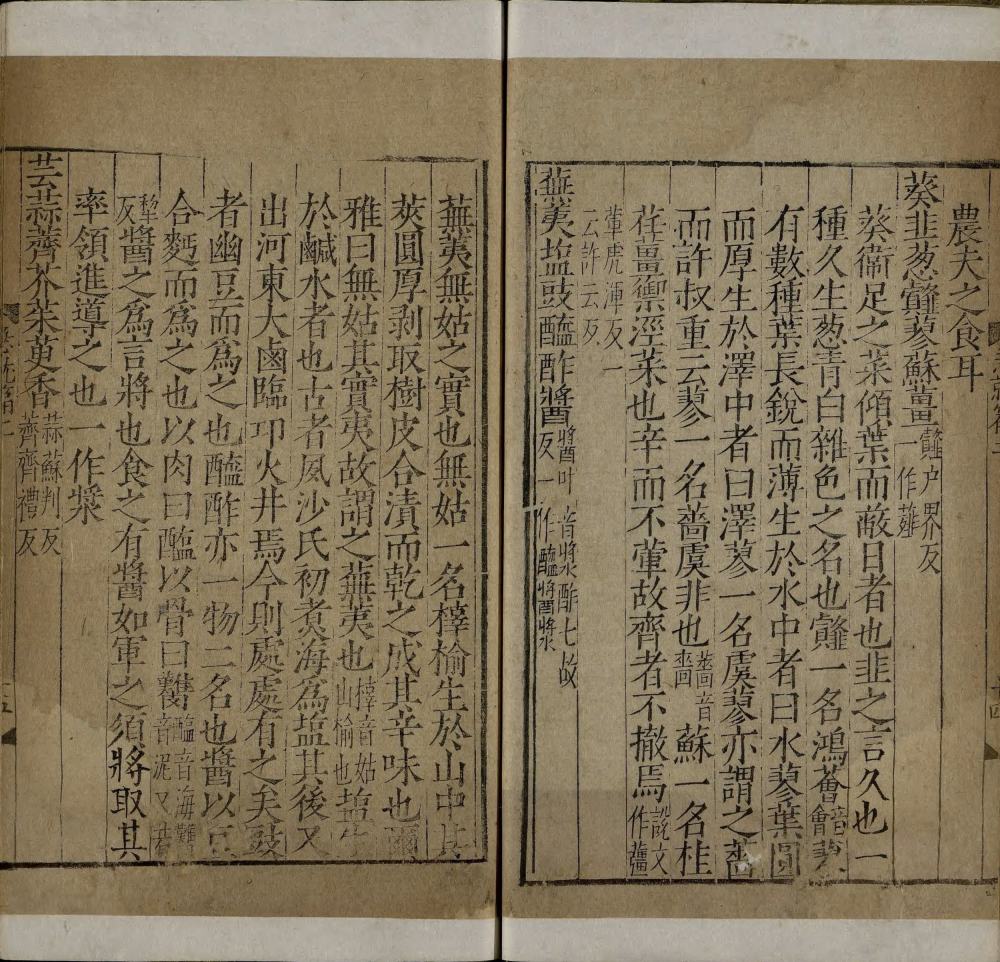 農夫之食耳
葵韭葱䪥蓼蘇薑䪥户界反一作薤
葵衞足之菜傾葉而蔽日者也韭之言久也一
種久生葱青白雜色之名也䪥一名鴻薈音會蓼
有數種葉長銳而薄生於水中者曰水蓼葉圓
而厚生於澤中者曰澤蓼一名虞蓼亦謂之薔
而許叔重云蓼一名薔虞非也薔音嗇蘇一名桂
荏薑禦溼菜也辛而不葷故齊者不撤焉說文作䕬
葷虎渾反一云許云反
蕪荑塩豉醯酢醬醬叶音將漿酢七故反一作醯醬漿
蕪荑無姑之實也無姑一名樟榆生於山中其
莢圓厚剥取樹皮合漬而乾之成其辛味也爾
雅曰無姑其實夷故謂之蕪荑也樟音姑山榆也塩生
於鹹水者也古者夙沙氏初煑海為塩其後又
出河東大鹵臨卭火井焉今則處處有之矣豉
者幽豆而為之也醯酢亦一物二名也醬以豆
合麫而為之也以肉曰醢以骨曰臡醢音海臡音泥又音
犂反醬之為言將也食之有醬如軍之須將取其
率領進導之也一作漿
芸蒜薺芥茱萸香蒜蘇判反薺齊禮反